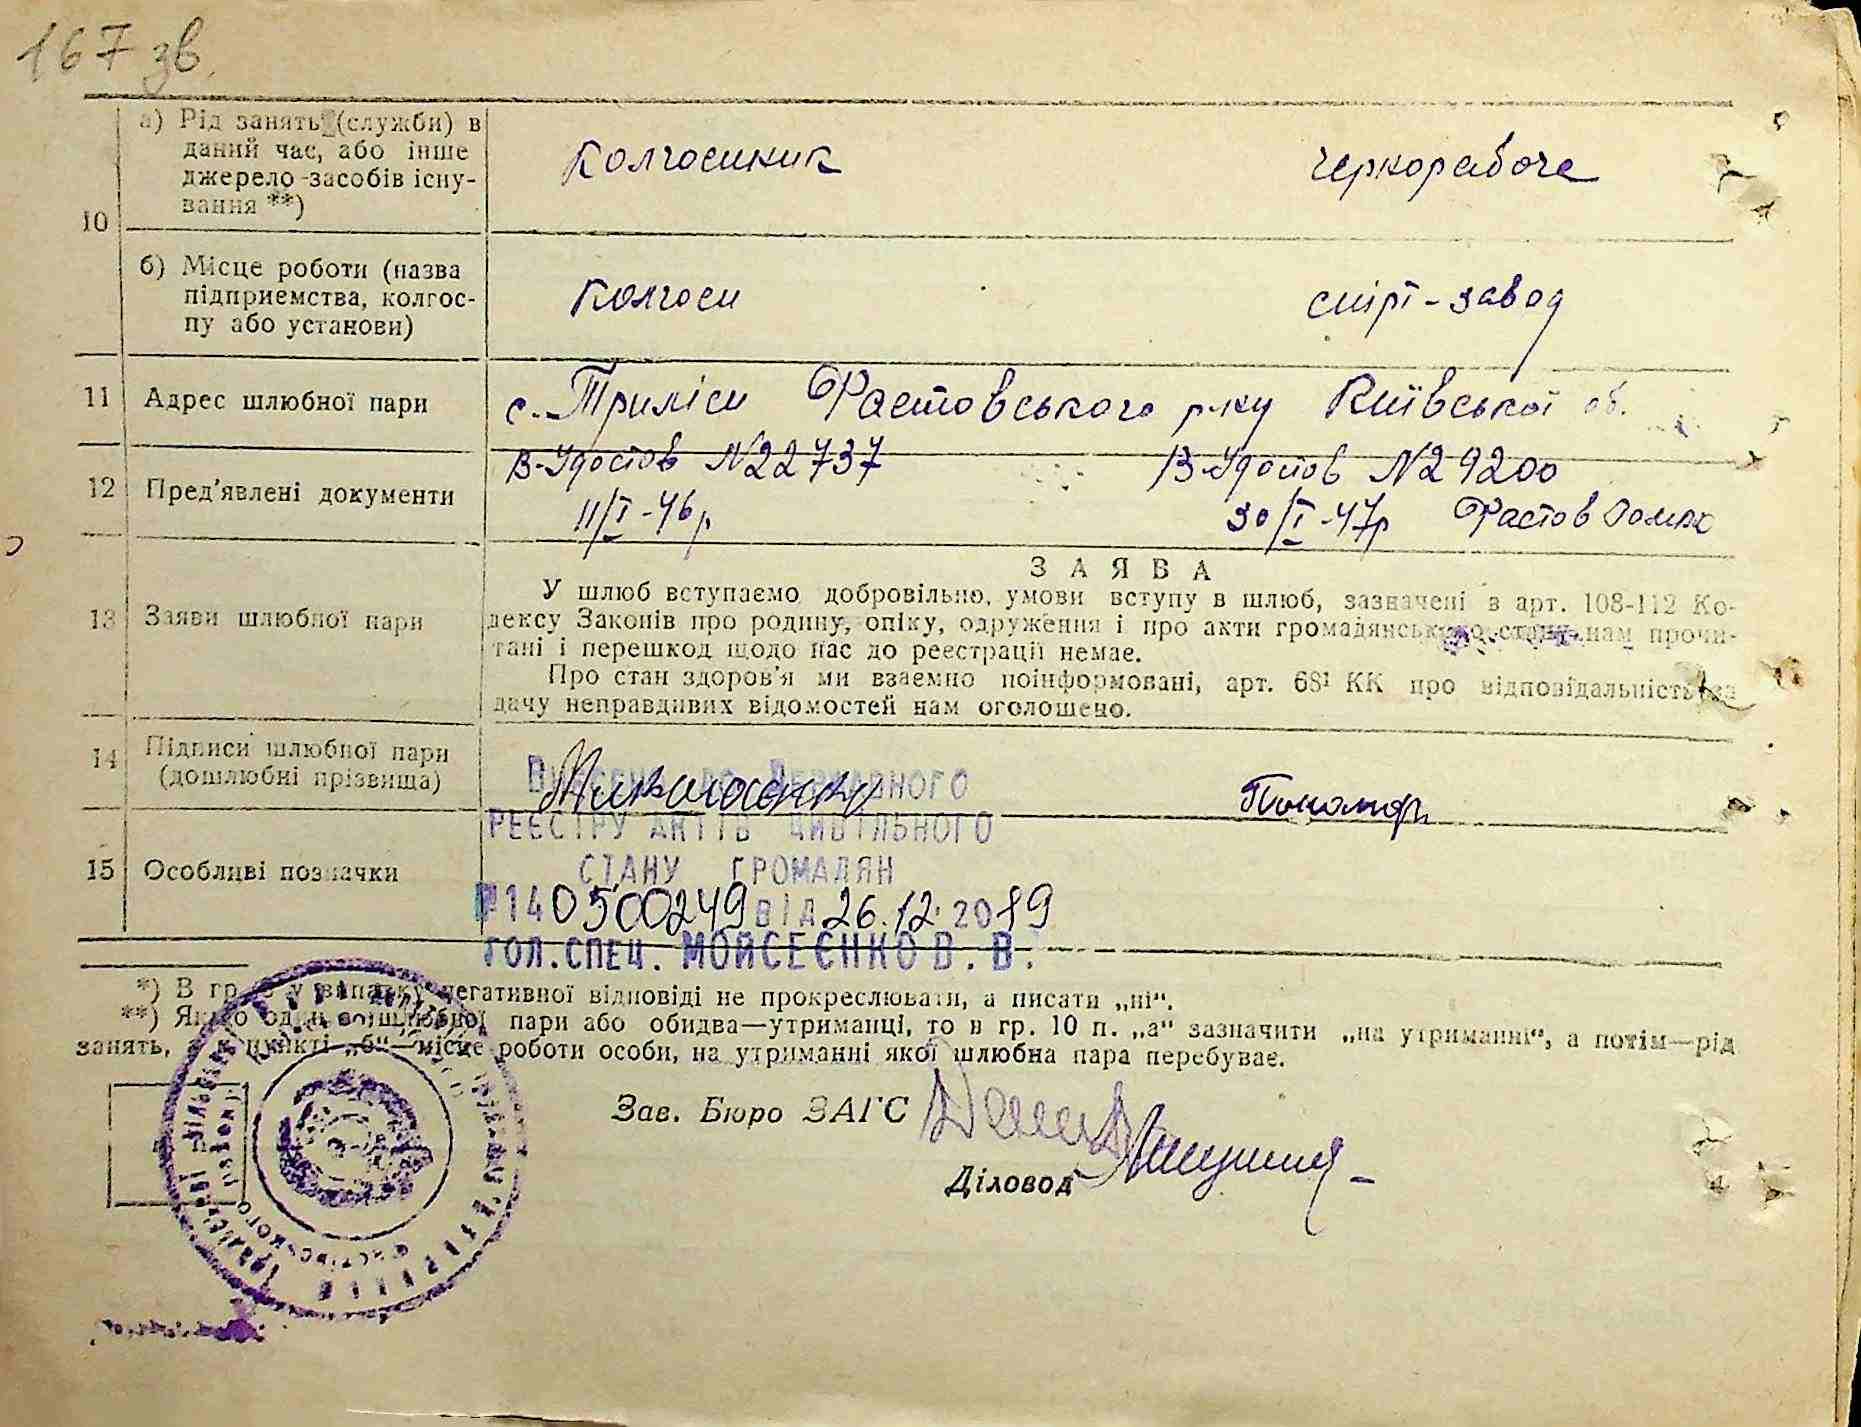 167 зв.
10
а) Рід занять (служби) в
даний час, або інше
джерело засобів існу-
вання **)
Колгоспник
черкорабоче
б) Місце роботи (назва
підприемства, колгос-
пу або установи)
Колгосп
спірт-завод
11 Адрес шлюбної пари
с. Триліси Фастовського р-ну Київської об.
12 Пред'явлені документи
В-Удостов №22737
11/I-46р
В-Удостов №29200
30/I-47р Фастов
ЗАЯВА
13 Заяви шлюбної пари
У шлюб вступаємо добровільно, умови вступу в шлюб, зазначені в арт. 108-112 Ко-
дексу Законів про родину, опіку, одруження і про акти громадянського стану нам прочи-
тані і перешкод щодо нас до реестрації немае.
Про стан здоров'я ми взаємно поінформовані, арт. 68¹ КК про відповідальність за
дачу неправдивих відомостей нам оголошено.
14 Підписи шлюбної пари
(дошлюбні прізвища)
Пономар
15 Особливі позначки
Внесено до Державного
реєстру актів цивільного
стану громадян
№140500249 від 26.12.2019
гол.спец. Мойсеєнко В.В.
*) В гр. у випадку негативної відповіді не прокреслювати, а писати „ні“.
**) Якщо один з шлюбної пари або обидва—утриманці, то в гр. 10 п. „а“ зазначити „на утриманні“, а потім—рід
занять, а в пункті „б“—місце роботи особи, на утриманні якої шлюбна пара перебуває.
Зав. Бюро ЗАГС
Діловод